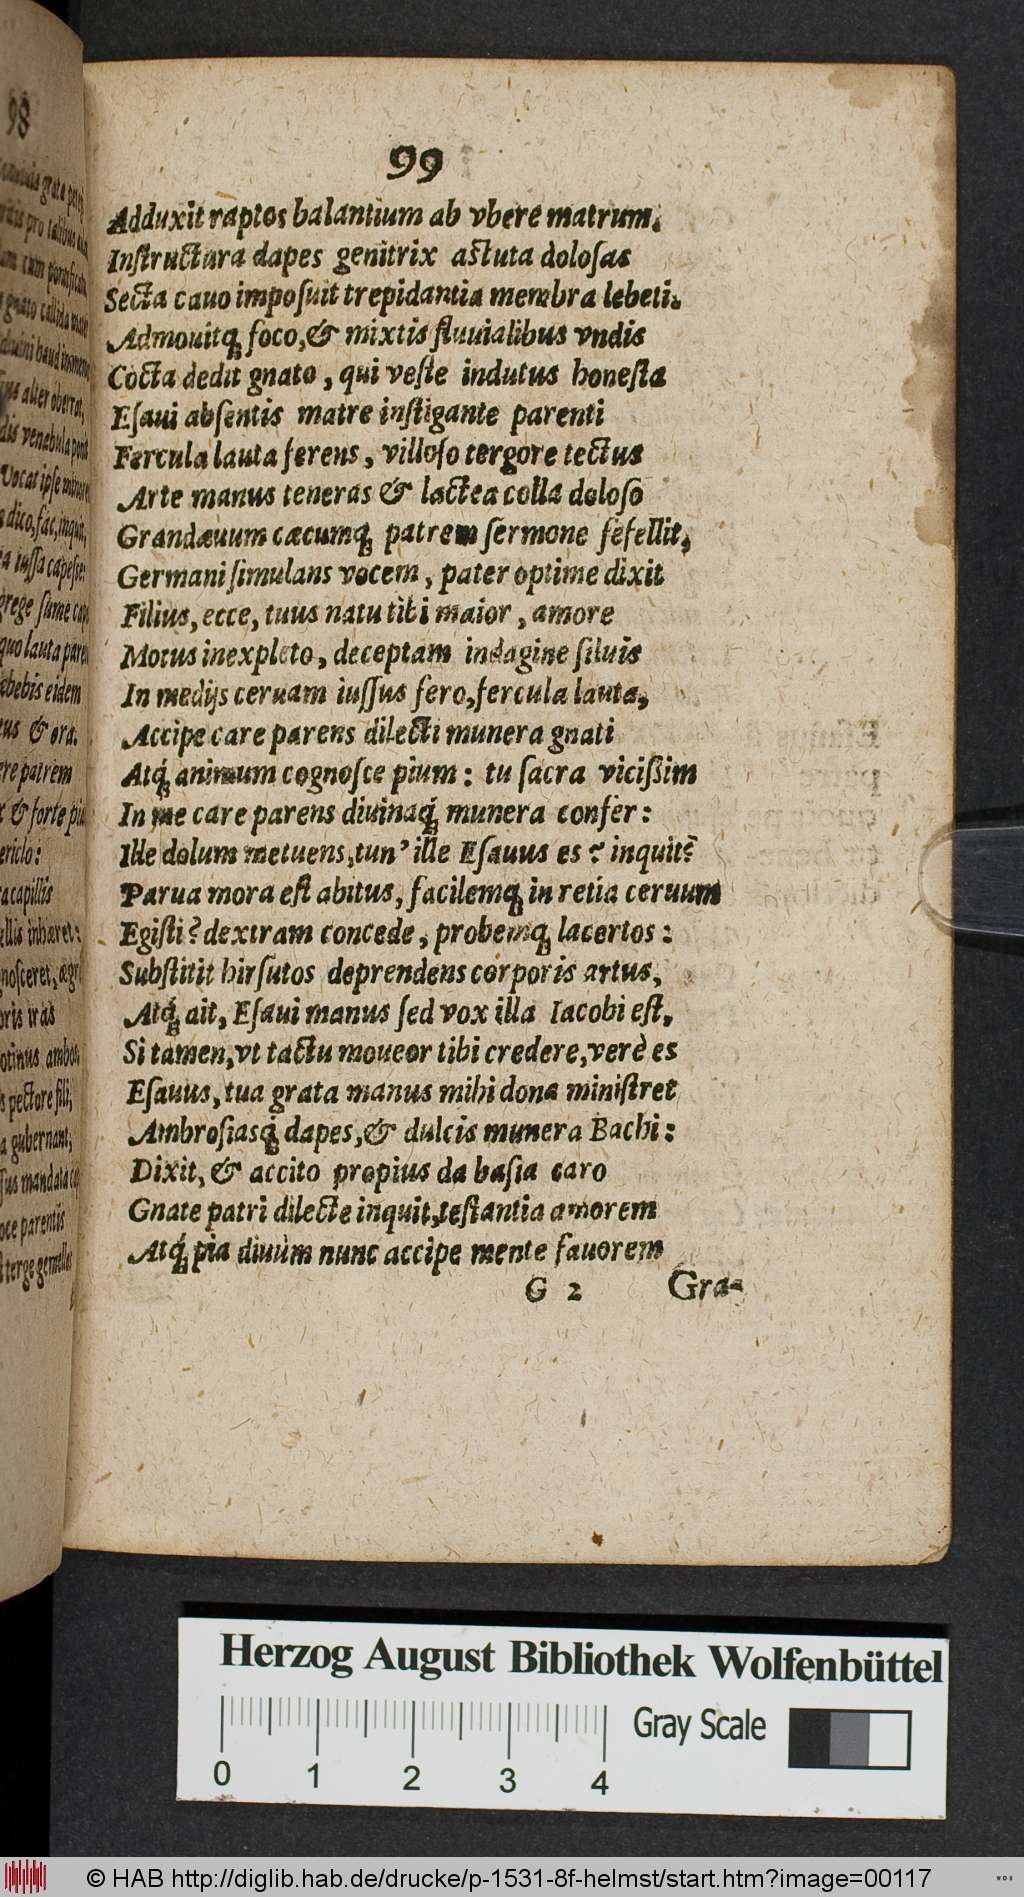 98
99
Adduxit raptos balantium ab vbere matrum.
Inſtructura dapes genitrix aſtuta doloſas
Secta cauo impoſuit trepidantia membra lebeti.
Admouitq́; foco, & mixtis fluuialibus vndis
Cocta dedit gnato, qui veſte indutus honeſta
Eſaui abſentis matre inſtigante parenti
Fercula lauta ferens, villoſo tergore tectus
Arte manus teneras & lactea colla doloſo
Grandæuum cæcumq́; patrem ſermone fefellit,
Germani ſimulans vocem, pater optime dixit
Filius, ecce, tuus natu tibi maior, amore
Motus inexpleto, deceptam indagine ſiluis
In medijs ceruam iuſſus fero, fercula lauta,
Accipe care parens dilecti munera gnati
Atq́; animum cognoſce pium: tu ſacra viciſsim
In me care parens diuinaq́; munera confer:
Ille dolum metuens, tun' ille Eſauus es? inquit?
Parua mora eſt abitus, facilemq́; in retia ceruum
Egiſti? dextram concede, probemq́; lacertos:
Subſtitit hirſutos deprendens corporis artus,
Atq́; ait, Eſaui manus ſed vox illa Iacobi eſt,
Si tamen, vt tactu moueor tibi credere, verè es
Eſauus, tua grata manus mihi dona miniſtret
Ambroſiasq́; dapes, & dulcis munera Bachi:
Dixit, & accito propius da baſia caro
Gnate patri dilecte inquit, teſtantia amorem
Atq́; pia diuûm nunc accipe mente fauorem
G 2 Gra-
Herzog August Bibliothek Wolfenbüttel
Gray Scale
0 1 2 3 4
© HAB http://diglib.hab.de/drucke/p-1531-8f-helmst/start.htm?image=00117